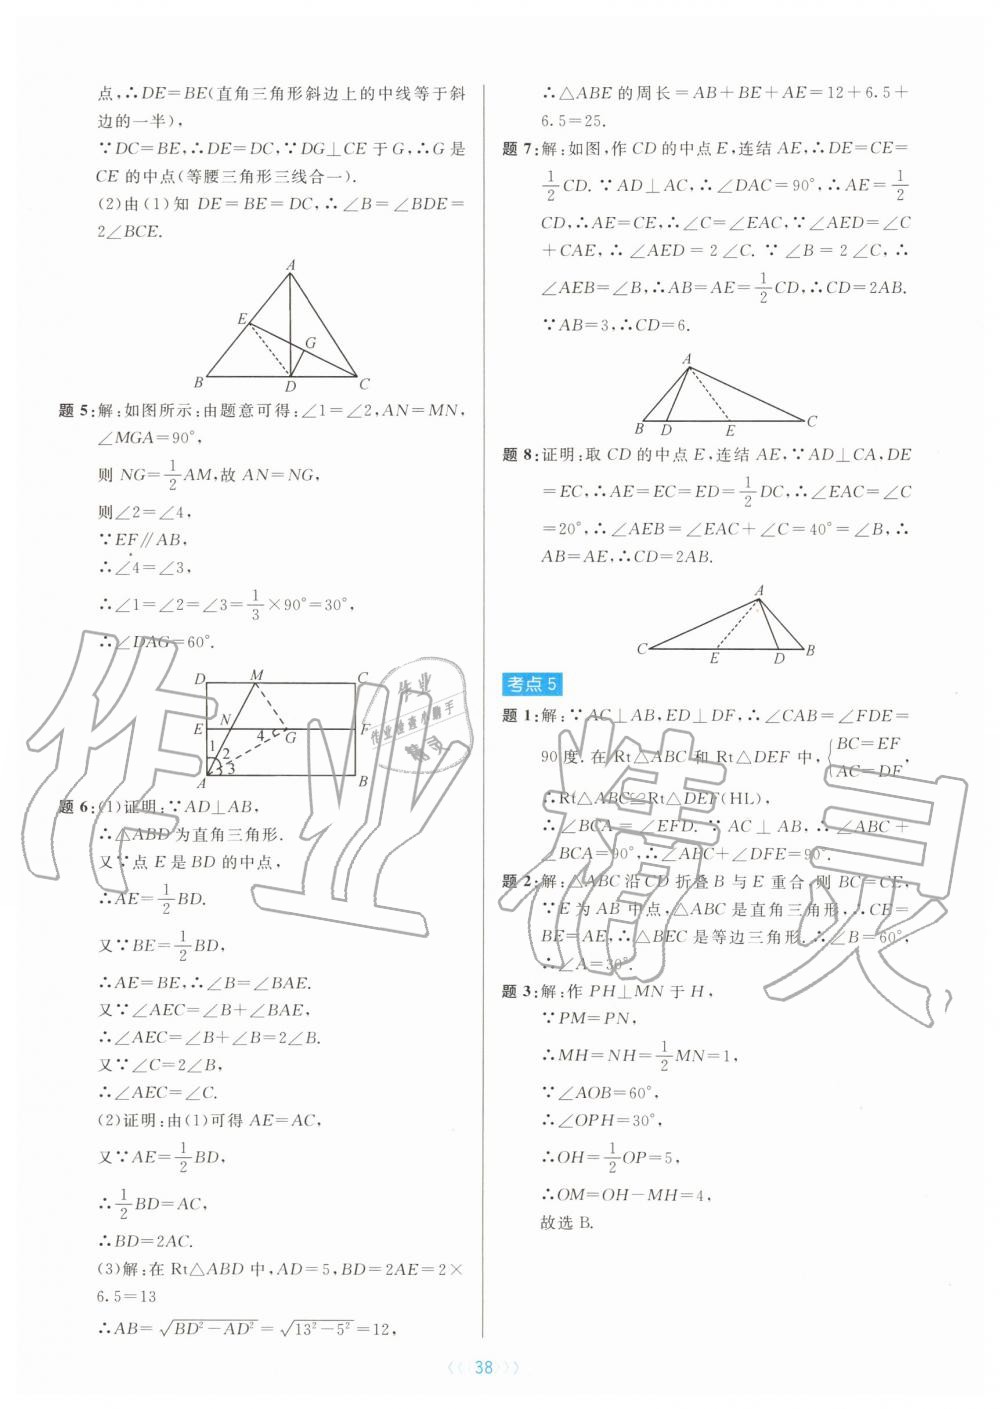 点,∴DE=BE(直角三角形斜边上的中线等于斜
边的一半),
∵DC=BE,∴DE=DC,∵DG⊥CE于G,∴G是
CE的中点(等腰三角形三线合一).
(2)由(1)知 DE=BE=DC,∴∠B=∠BDE=
2∠BCE.
A
E
G
B D C
题5:解:如图所示:由题意可得:∠1=∠2,AN=MN,
∠MGA=90°,
则 NG=1/2AM,故 AN=NG,
则∠2=∠4,
∵EF∥AB,
∴∠4=∠3,
∴∠1=∠2=∠3=1/3×90°=30°,
∴∠DAG=60°.
D M C
E N 4 G F
1 2 3
A B
题6:(1)证明:∵AD⊥AB,
∴△ABD为直角三角形.
又∵点E是BD的中点,
∴AE=1/2BD.
又∵BE=1/2BD,
∴AE=BE,∴∠B=∠BAE.
又∵∠AEC=∠B+∠BAE,
∴∠AEC=∠B+∠B=2∠B.
又∵∠C=2∠B,
∴∠AEC=∠C.
(2)证明:由(1)可得 AE=AC,
又∵AE=1/2BD,
∴1/2BD=AC,
∴BD=2AC.
(3)解:在Rt△ABD中,AD=5,BD=2AE=2×
6.5=13
∴AB=√(BD²-AD²)=√(13²-5²)=12,
∴△ABE的周长=AB+BE+AE=12+6.5+
6.5=25.
题7:解:如图,作CD的中点E,连结AE,∴DE=CE=
1/2CD.∵AD⊥AC,∴∠DAC=90°,∴AE=1/2
CD,∴AE=CE,∴∠C=∠EAC,∵∠AED=∠C
+CAE,∴∠AED=2∠C.∵∠B=2∠C,∴
∠AEB=∠B,∴AB=AE=1/2CD,∴CD=2AB.
∵AB=3,∴CD=6.
A
B D E C
题8:证明:取CD的中点E,连结AE,∵AD⊥CA,DE
=EC,∴AE=EC=ED=1/2DC,∴∠EAC=∠C
=20°,∴∠AEB=∠EAC+∠C=40°=∠B,∴
AB=AE,∴CD=2AB.
A
C E D B
考点5
题1:解:∵AC⊥AB,ED⊥DF,∴∠CAB=∠FDE=
90度.在Rt△ABC和Rt△DEF中,{BC=EF
AC=DF
∴Rt△ABC≌Rt△DEF(HL),
∴∠BCA=∠EFD.∵AC⊥AB,∴∠ABC+
∠BCA=90°,∴∠ABC+∠DFE=90°.
题2:解:△ABC沿CD折叠B与E重合,则BC=CE,
∵E为AB中点,△ABC是直角三角形,∴CE=
BE=AE,∴△BEC是等边三角形.∴∠B=60°,
∴∠A=30°.
题3:解:作PH⊥MN于H,
∵PM=PN,
∴MH=NH=1/2MN=1,
∵∠AOB=60°,
∴∠OPH=30°,
∴OH=1/2OP=5,
∴OM=OH-MH=4,
故选B.
作业精灵
作业
作业检查小助手
精灵
38